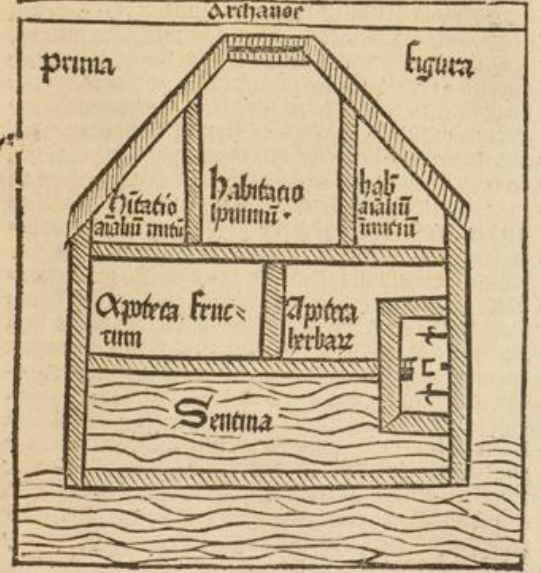 Archanoe
prima
figura
hĩtatio
aĩaliũ mitiũ
habitatio
hominũ ·
hab̃
aĩaliũ
ĩmitiũ
Apoteca fruc=
tuum
Apoteca
herbaꝝ
Sentina